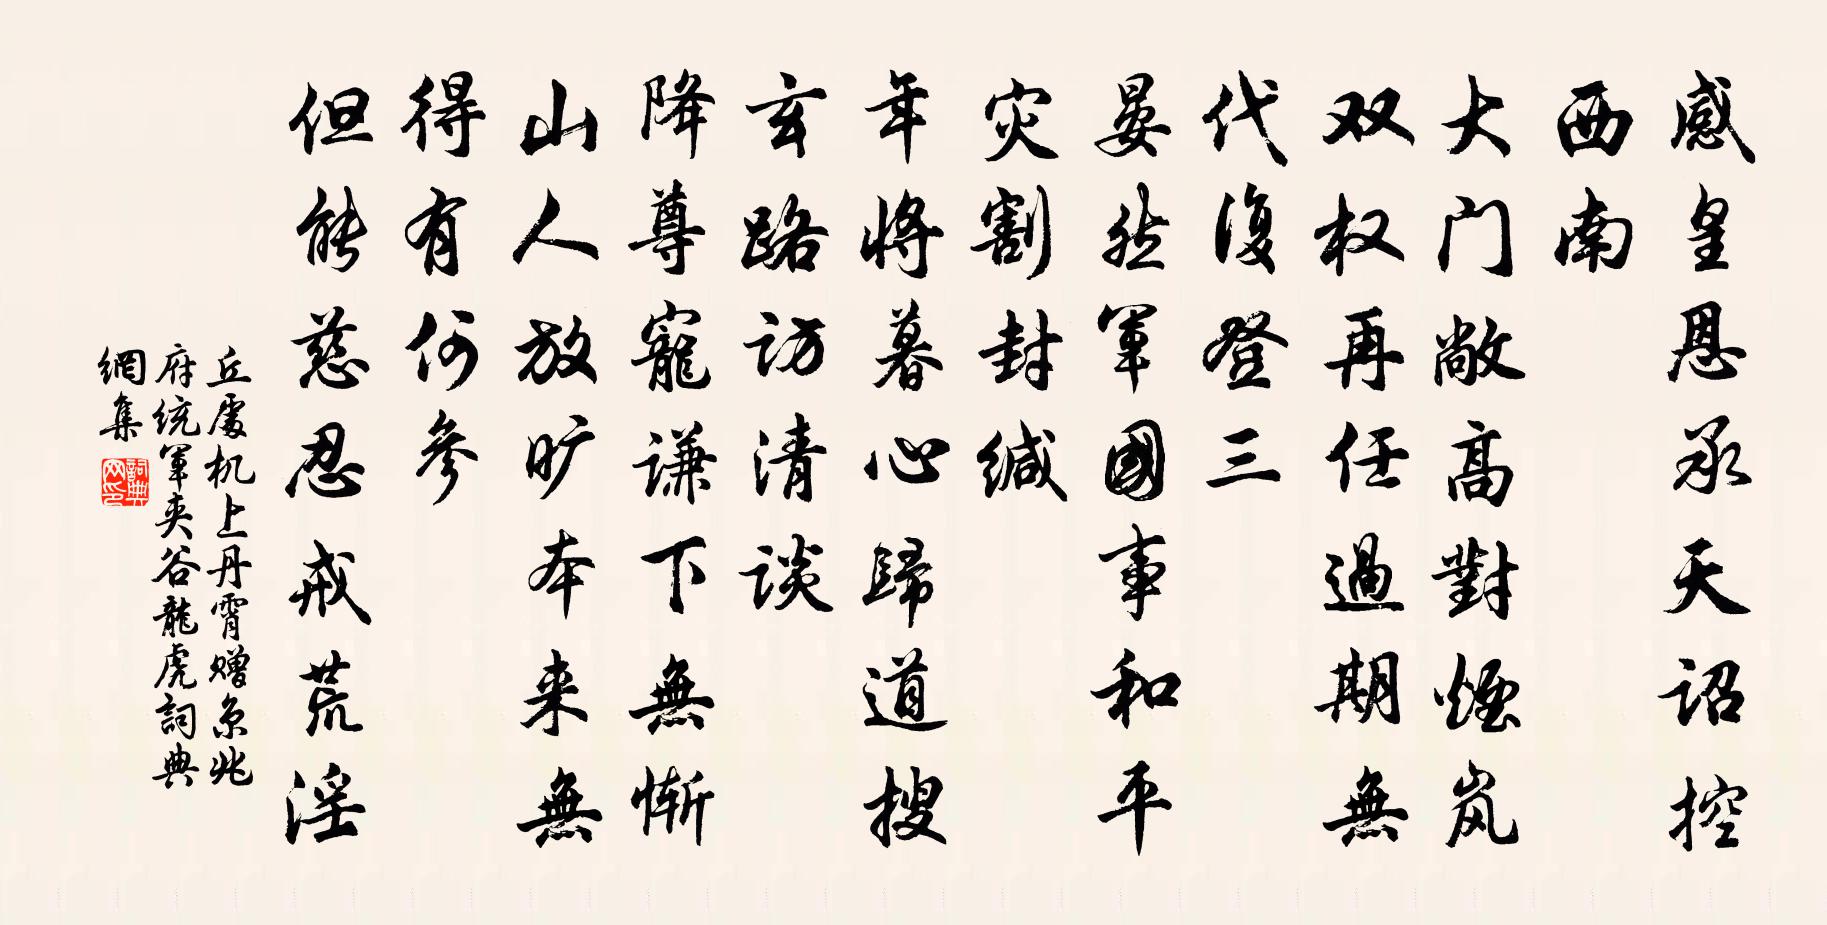 感皇恩承天詔控
西南
大门敞高對煙岚
双权再任過期無
代復登三
晏然軍國事和平
灾割封缄
年将暮心歸道搜
玄路访清談
降尊寵謙下無慚
山人放旷本来無
得有何參
但能慈忍戒荒淫
丘處机上丹霄赠京兆
府統軍夾谷龍虎詞典
網集
詞典
网印